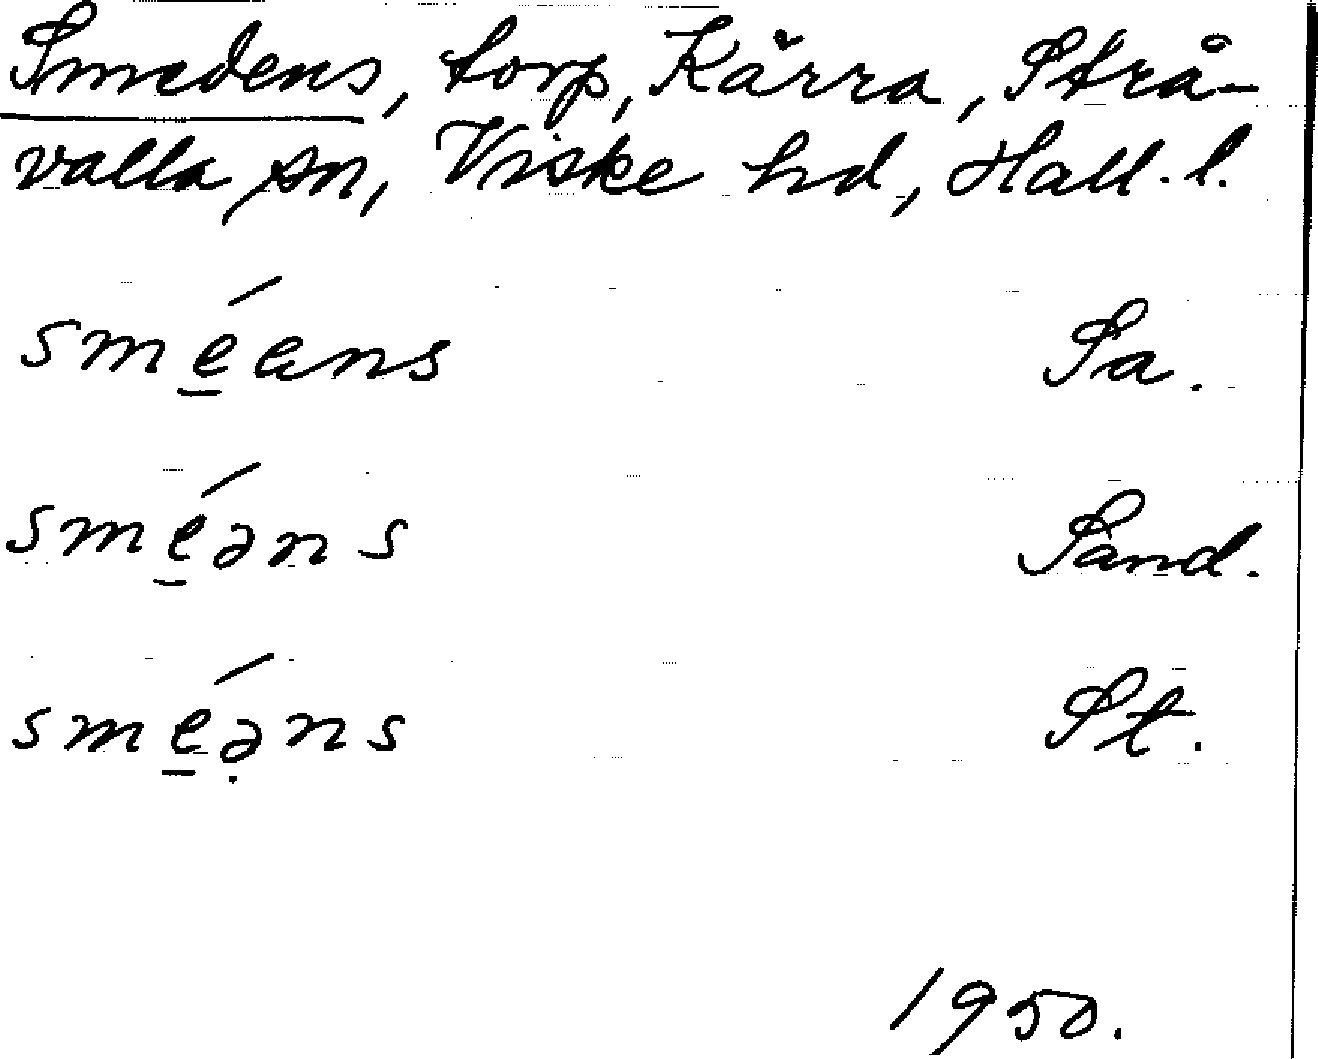 Smedens, torp, Kärra, Strå-
valla sn, Viske hd, Hall. l.
smé̱ans Sa.
smé̱əns Sand.
smé̱ə̣ns St.
1950.